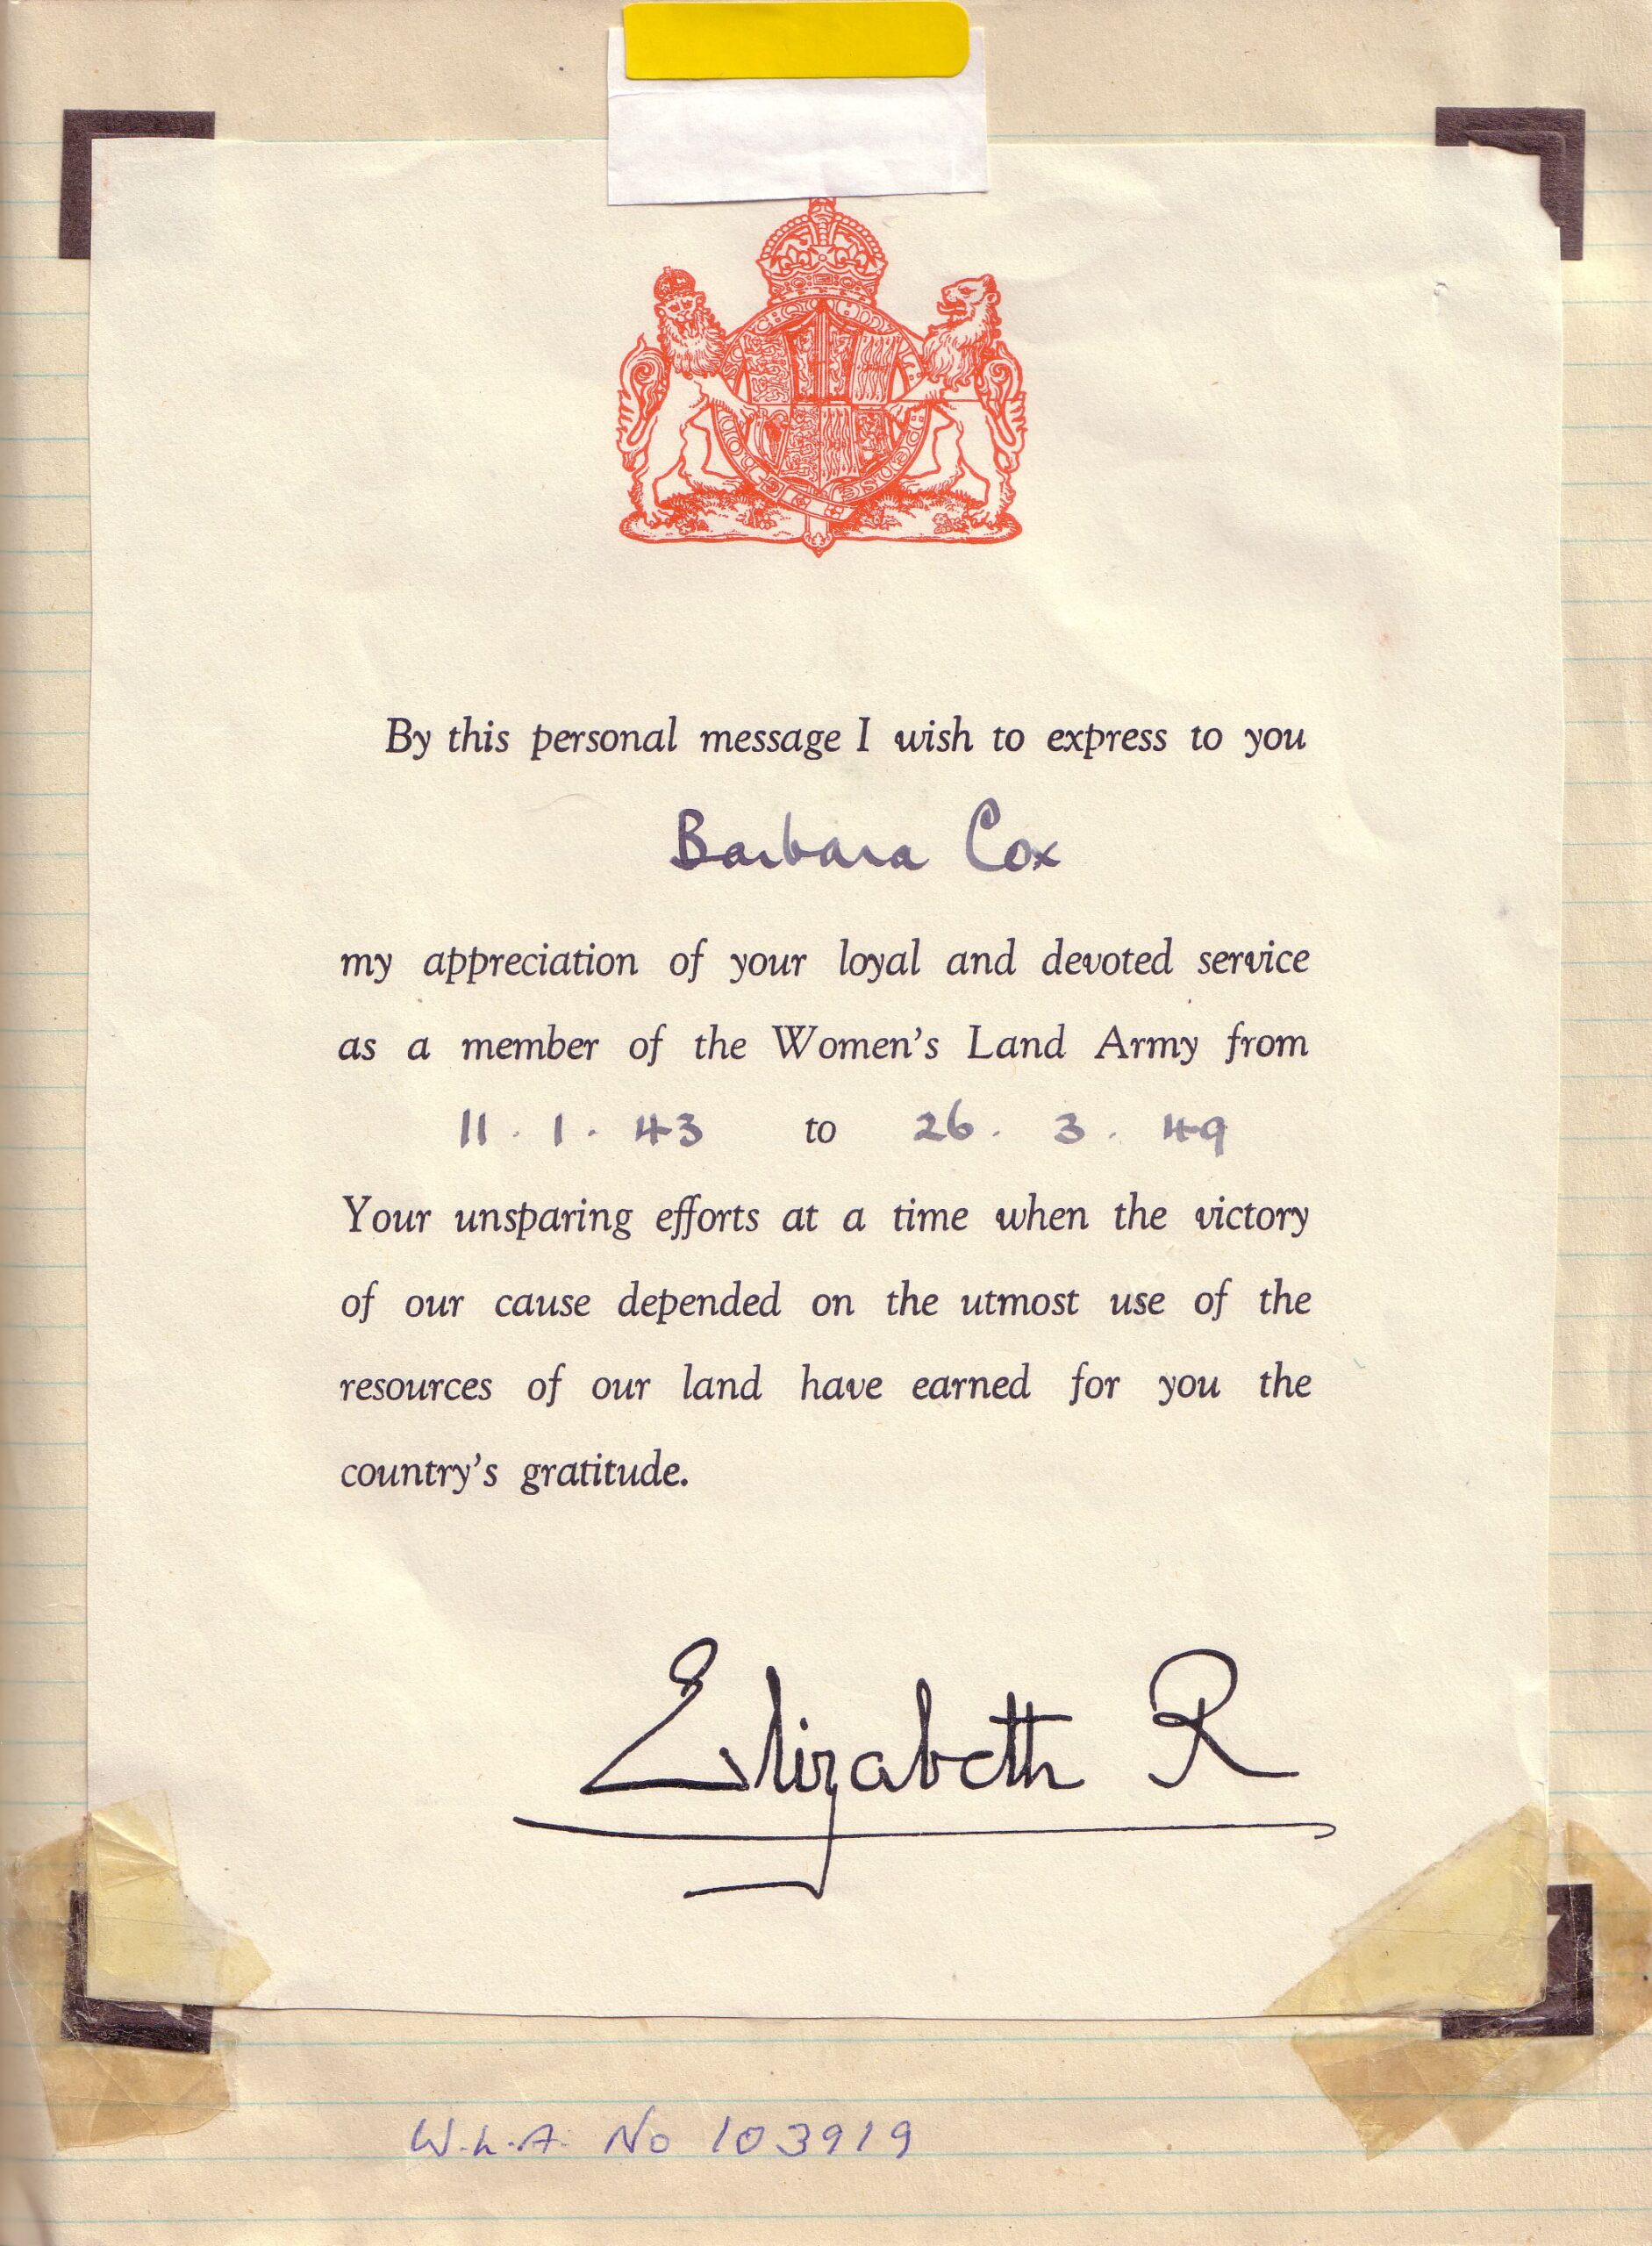 By this personal message I wish to express to you
Barbara Cox
my appreciation of your loyal and devoted service
as a member of the Women's Land Army from
11 . 1 . 43 to 26 . 3 . 49
Your unsparing efforts at a time when the victory
of our cause depended on the utmost use of the
resources of our land have earned for you the
country's gratitude.
Elizabeth R
W.L.A. No 103919